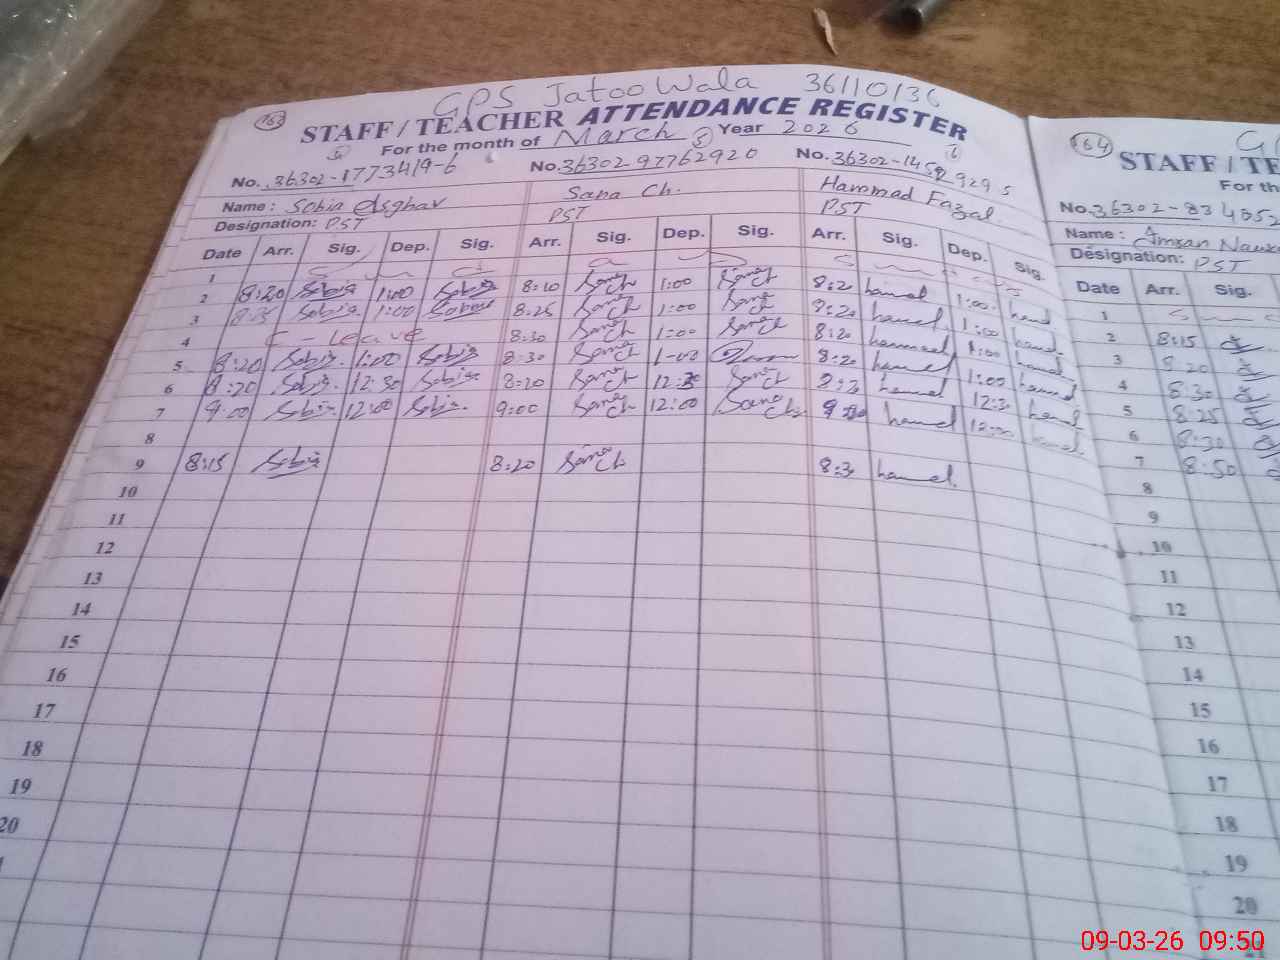 GPS Jatoo Wala 36110136
163 STAFF / TEACHER ATTENDANCE REGISTER
For the month of March Year 2026
No. 36302-1773419-6 No. 36302 97762920 No. 36302-1458929 5
Name: Sobia Asghar Sana Ch. Hammad Fazal
Designation: PST PST PST
Date Arr. Sig. Dep. Sig. Arr. Sig. Dep. Sig. Arr. Sig. Dep. Sig.
1
2 8:20 Sobia 1:00 Sobia 8:20 Sana Ch 1:00 Sana Ch 8:20 hammad 1:00
3 8:25 Sobia 1:00 Sobia 8:25 Sana Ch 1:00 Sana Ch 8:20 hammad 1:00
4 C - Leave 8:30 Sana Ch 1:00 Sana Ch 8:20 hammad 1:00
5 8:20 Sobia 1:00 Sobia 8:30 Sana Ch 1-00 8:20 hammad 1:00
6 8:20 Sobia 12:30 Sobia 8:20 Sana Ch 12:30 Sana Ch hammad
7 9:00 Sobia 12:00 Sobia 9:00 Sana Ch 12:00 Sana Ch hammad
8
9 8:15 Sobia 8:20 Sana Ch 8:30 hammad
10
11
12
13
14
15
16
17
18
19
20
164
STAFF / TE
For th
No. 36302-83485
Name: Imran Nawa
Designation: PST
Date Arr. Sig.
1
2 8:15
3 8:20
4 8:30
5 8:25
6 8:30
7 8:50
8
9
10
11
12
13
14
15
16
17
18
19
20
21
09-03-26 09:50